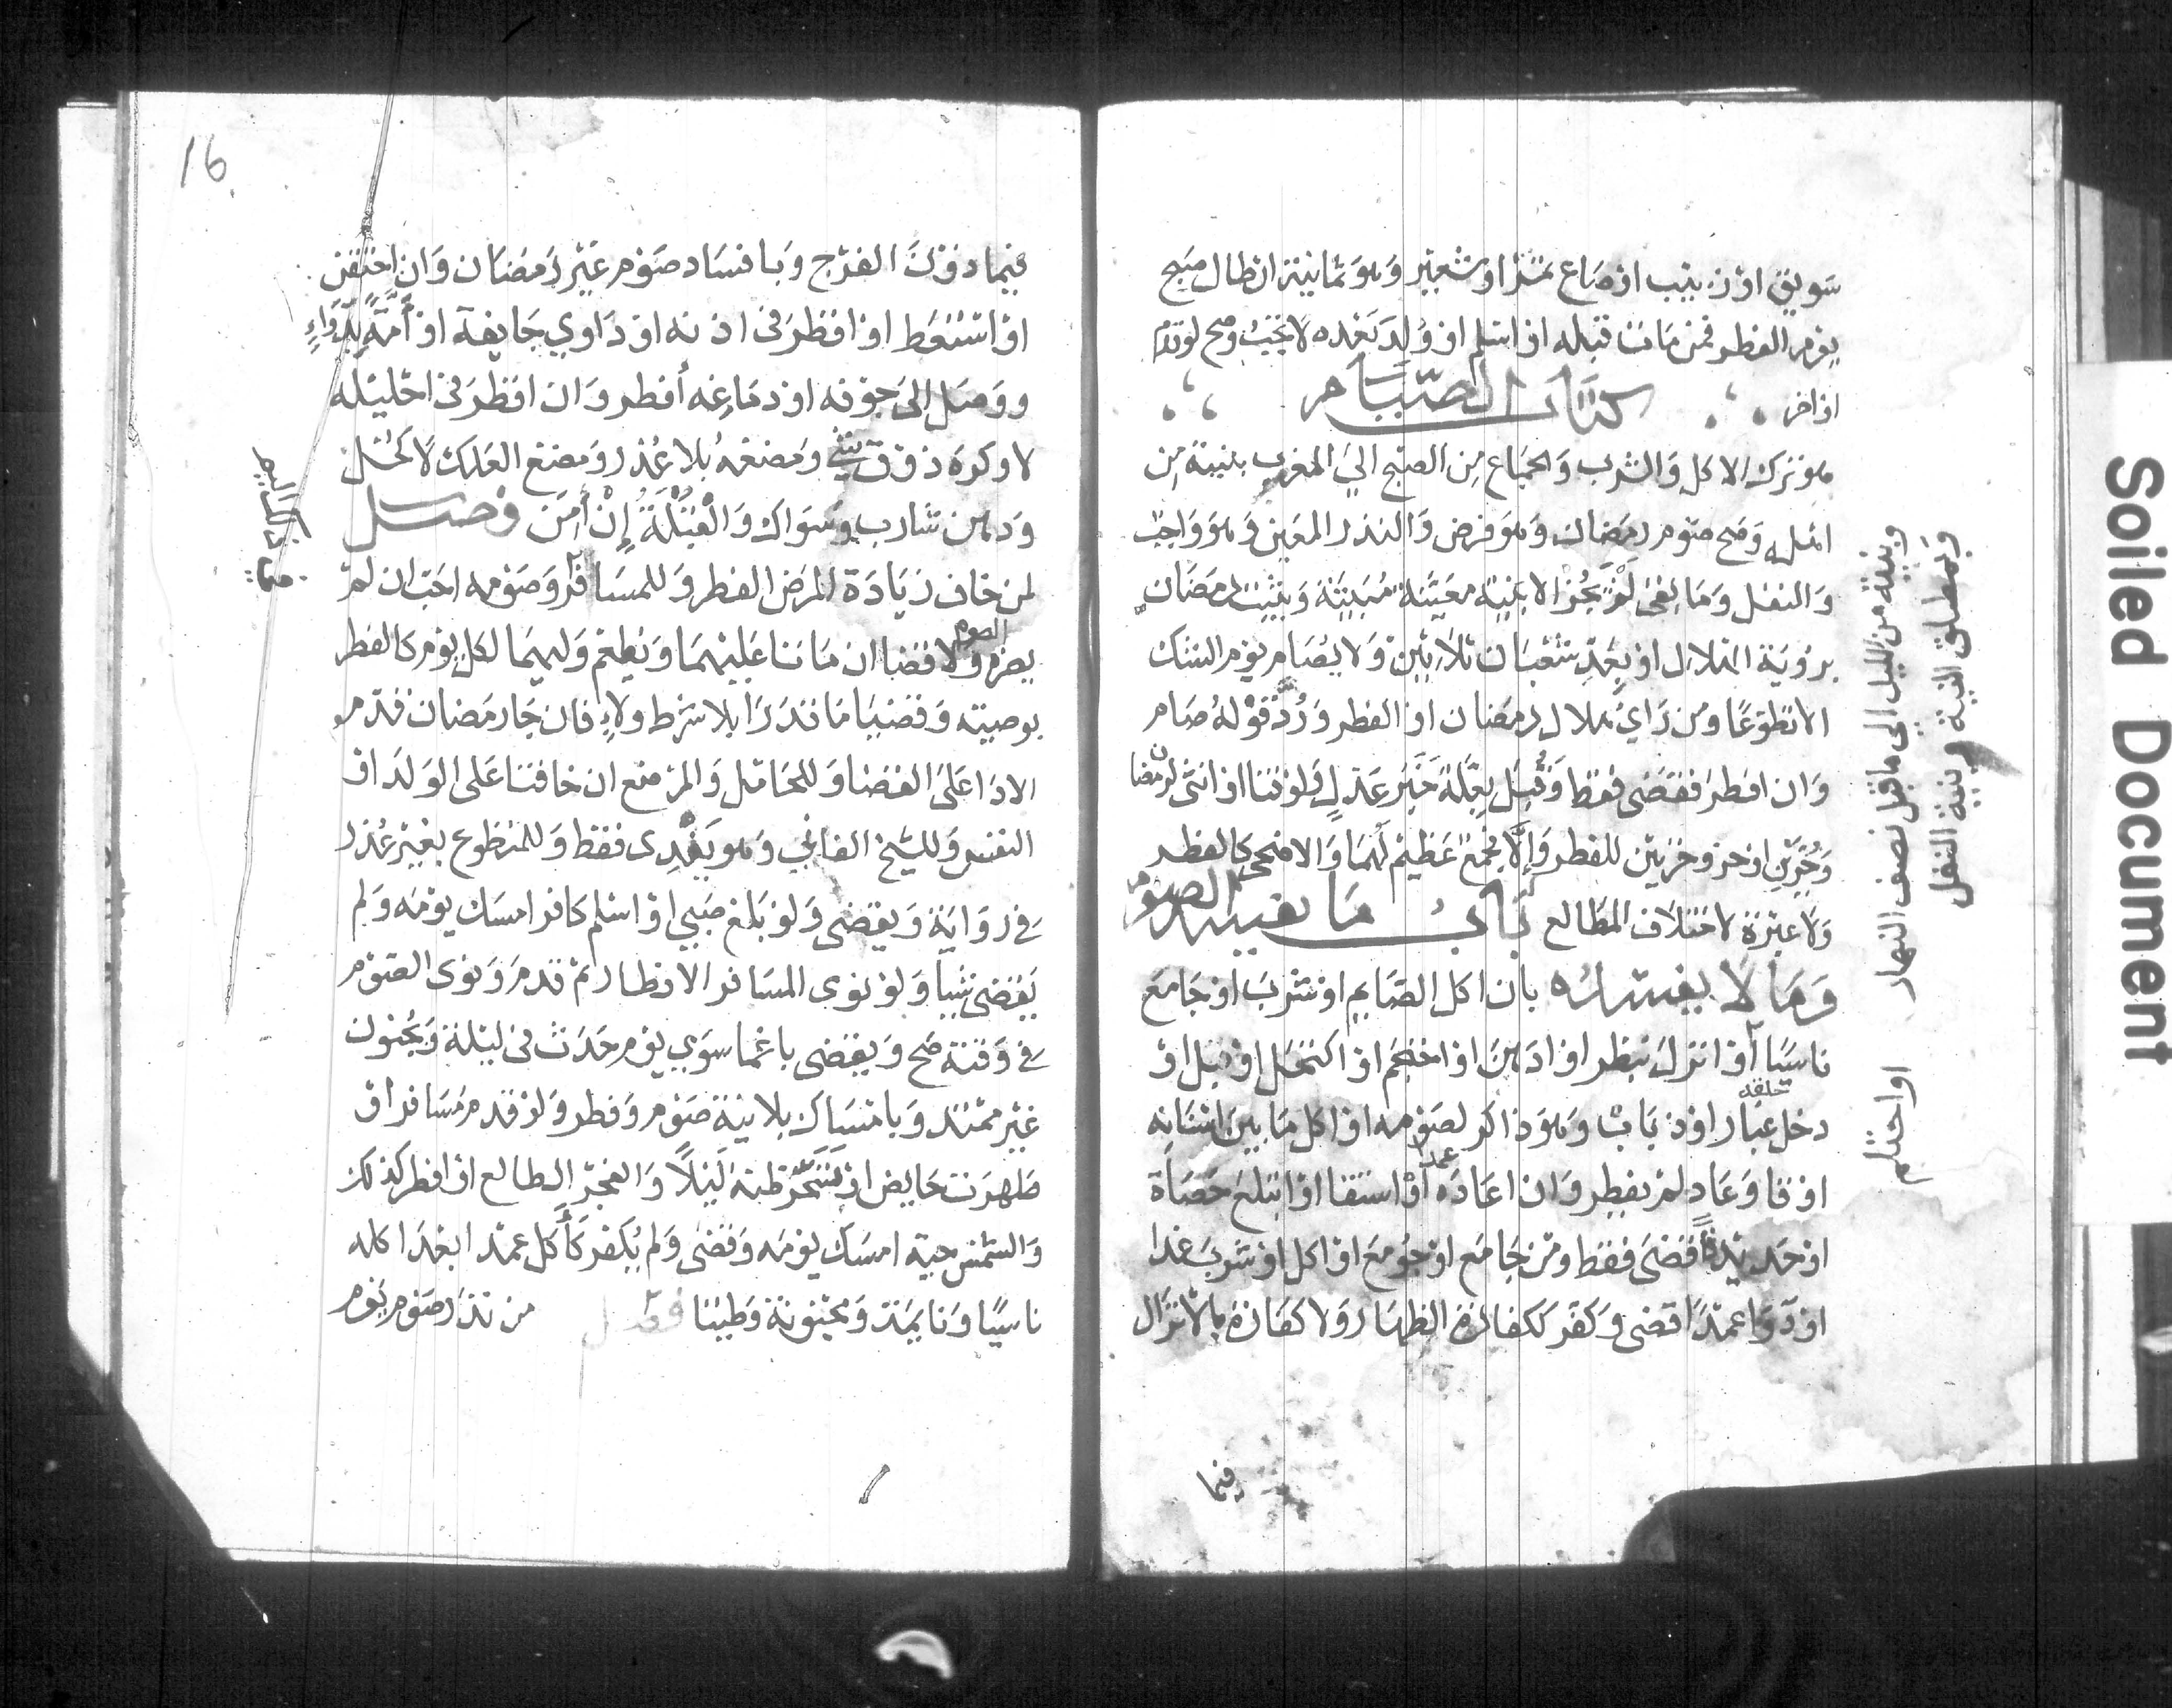 سَويق او زبيب او صَاع تمر او شعير وهو ثمانية ارطال صبح
يوم الفطر فمن مات قبله او اسلم او وُلِدَ بَعْده لا يجب وصح لو قدم
او اخر كتاب الصيام
هو ترك الاكل وَالشرب وَالجماع مِن الصبح الى المغرب بنية من
اهله وَصح صَوم رمضان وهو فرض وَالنذر المعَين وهو واجب
وَالنفل وَمَا بقى لم يجُز الا بنية معَينة مُبيتة وَيثبت رمضان
برؤية الهلال او بعد شعبَان ثلاثين وَلا يصَام يوم الشك
الا تطوعًا ومن رَاي هلال رمضان او الفطر وَرُدَّ قوْلهُ صَام
وَان افطر قضى فقط وَقُبِل بعِلة خَبَر عَدل وَلو قنا او انثى لرمضان
وَحُرَّين او حر وحرتين للفطر وَإلا فجمع عَظيم لهما وَالاضحى كالفطر
وَلا عبرة لاختلاف المطالع باب مَا يفسد الصوم
وَمَا لا يفسده بان اكل الصَايم او شرب او جَامَع
ناسيًا او انزل بنظر او ادهن او احتجم او اكتحل او قبل او
دخل حلقه غبار او ذبَاب وَهوَ ذاكر لصَومه او اكل مَا بين اسنانه
او قا وَعَاد لم يفطر وَان اعَادَه او استقا عمدا او ابتلع حَصَاة
او حَديدًا قضَى فقط ومن جَامَع او جُومعَ او اكل او شربَ غدا
او دَوَا عمدًا قضى وَكفر ككفارة الظهَار وَلا كفارة بالانزال
فيما
وبنية من الليل الى ما قبل نصف النهار
وَبمطلق النية وبنية النفل
او احتلم
16
فيمَا دونَ الفرج وَبافسَاد صَوم غَيْر رَمضَان وَان احتقن
او استعَط او اقطرَ في اذنه او دَاوي جَايفة او أمَّة بِدَوَاءٍ
ووَصَل الى جوفه او دمَاغه أفطر وَان اقطرَ في احليله
لا وكره ذوق شي وَمضغهُ بلا عُذر وَمضغ العلك لا كحْل
وَدهن شارب وسوَاك وَالْقُبْلَةُ إِنْ أَمِنَ فصل
لمن خاف زيَادَة المرَض الفطر وَللمسَافر وَصَومه احَب ان لم
يضره الصوم وَلا قضا ان مَاتا عَليهمَا وَيُطعم وَليهمَا لكل يوم كالفطر
بوصية وَقضيَا مَا قدَرَا بلا شرط ولاءٍ فان جَا رمضان قدم
الادا عَلى القضا وَللحَامل وَالمرضع ان خافتا عَلى الوَلد او
النفس وَللشيخ الفاني وَهو يَفْدِى فقط وَللمتطوع بغير عُذر
في روَاية وَيقضى وَلو بَلغ صَبي او اسلم كافر امسَك يومَه وَلم
يَقضى شيأ وَلو نوى المسَافر الافطار ثم قدمَ وَنوى الصَوم
في وَقته صَح وَيقضى باغما سوَي يوم حَدَث في ليلة وَبجُنون
غَير ممتد وَبامسَاك بلا نية صَوم وَفطر وَلو قدم مُسَافر او
طهرت حَايض او تسَحر ظنه ليْلاً وَالفجر الطالع او افطر كذلك
وَالشمس حية امسَك يومَه وَقضى وَلم يُكفر كَأَكل عمدا بَعْدَ اكله
ناسيًا وَنايمَة وَمجنونة وَطيتا فصل من نذَر صَوم يَوم